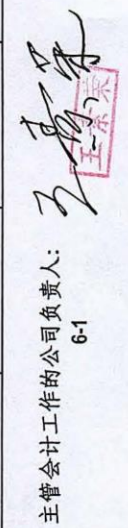 主管会计工作的公司负责人:
6-1